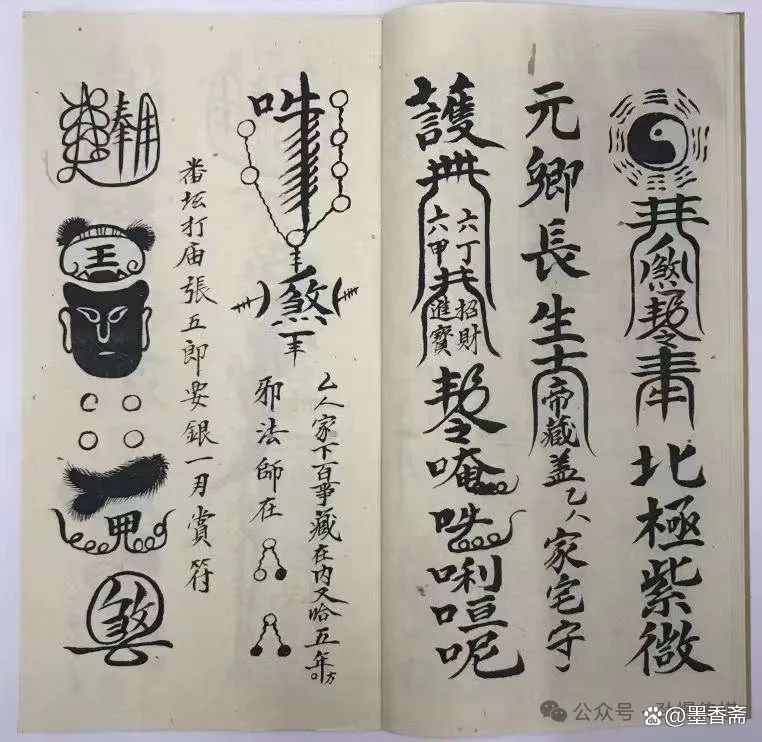 煞
奉
北極紫微
元卿長生士
帝藏蓋乙人家宅守
護
六丁
六甲
招財
進寶
唵
吽
唎
呾
呢
煞
乙人家下百事藏在内又哈五年方
邪法師在
番坛打庙張五郎安銀一月賞符
奉
王
甲
煞
公众号
@墨香斋